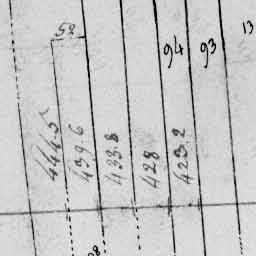 52
94
93
13
444.5
439.6
433.8
428
423.2